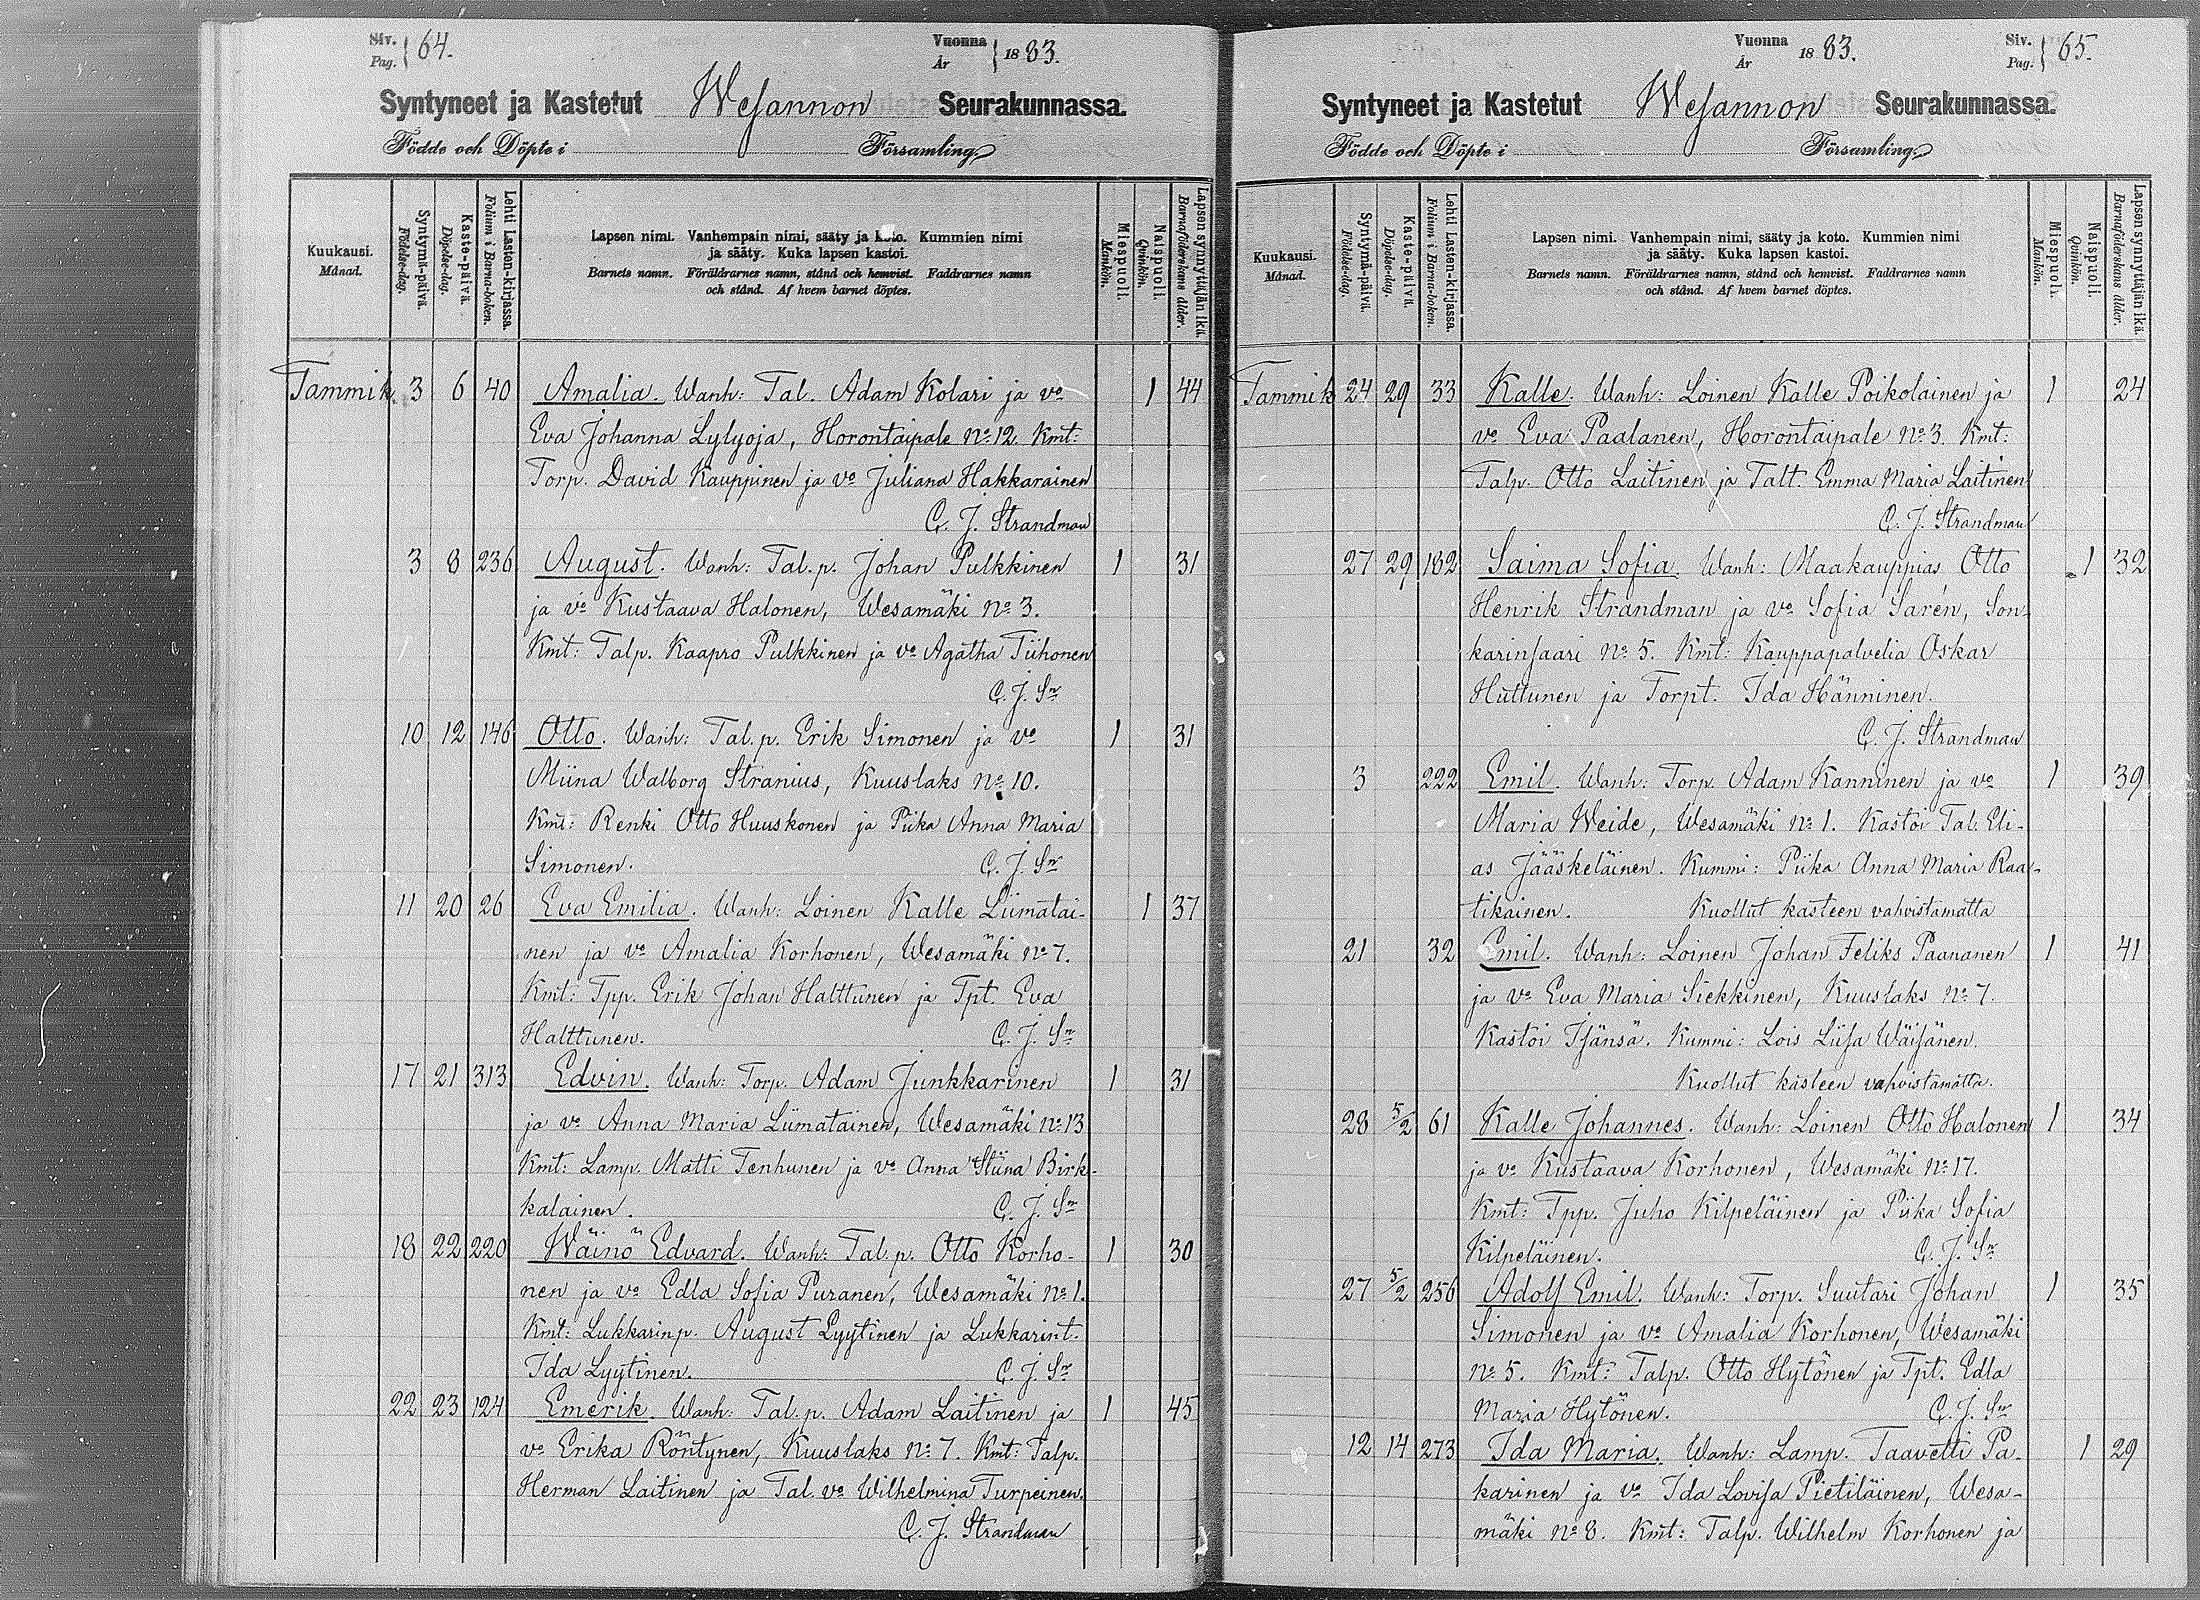 Siv. Pag. 64.
Vuonna År 1883.
Syntyneet ja Kastetut Wesannon Seurakunnassa.
Födde och Döpte i Församling
Kuukausi. Månad.
Syntymä-päivä. Födelse-dag.
Kaste-päivä. Döpelse-dag.
Lehti Lasten-kirjassa. Folium i Barna-boken.
Lapsen nimi. Vanhempain nimi, sääty ja koto. Kummien nimi
ja sääty. Kuka lapsen kastoi.
Barnets namn. Föräldrarnes namn, stånd och hemvist. Faddrarnes namn
och stånd. Af hvem barnet döptes.
Miespuoli. Mankön.
Naispuoli. Qvinkön.
Lapsen synnyttäjän ikä. Barnaföderskans ålder.
Tammik. 3 6 40 Amalia. Wanh: Tal. Adam Kolari ja vo 1 44
Eva Johanna Lylyoja, Horontaipale No 12. Kmt:
Torp. David Kauppinen ja vo Juliana Hakkarainen
C. J. Strandman
3 8 236 August. Wanh: Tal.p. Johan Pulkkinen 1 31
ja vo Kustaava Halonen, Wesamäki No 3.
Kmt: Talp. Kaapro Pulkkinen ja vo Agatha Tiihonen
C. J. Sn
10 12 146 Otto. Wanh: Tal.p. Erik Simonen ja vo 1 31
Miina Walborg Stranius, Kuuslaks No 10.
Kmt: Renki Otto Huuskonen ja Piika Anna Maria
Simonen. C. J. Sn
11 20 26 Eva Emilia. Wanh: Loinen Kalle Liimatai- 1 37
nen ja vo Amalia Korhonen, Wesamäki No 7.
Kmt: Tpp. Erik Johan Halttunen ja Tpt. Eva
Halttunen. C. J. Sn
17 21 313 Edvin. Wanh: Torp. Adam Junkkarinen 1 31
ja vo Anna Maria Liimatainen, Wesamäki No 13
Kmt: Lamp. Matti Tenhunen ja vo Anna Stiina Birk-
kalainen. C. J. Sn
18 22 220 Wäinö Edvard. Wanh: Tal.p. Otto Korho- 1 30
nen ja vo Edla Sofia Puranen, Wesamäki No 1.
Kmt: Lukkarinp. August Lyytinen ja Lukkarint.
Ida Lyytinen. C. J. Sn
22 23 124 Emerik. Wanh: Tal.p. Adam Laitinen ja 1 45
vo Erika Röntynen, Kuuslaks No 7. Kmt: Talp.
Herman Laitinen ja Tal. vo Wilhelmina Turpeinen.
C. J. Strandman
Vuonna År 1883.
Siv. Pag. 65.
Syntyneet ja Kastetut Wesannon Seurakunnassa.
Födde och Döpte i Församling
Kuukausi. Månad.
Syntymä-päivä. Födelse-dag.
Kaste-päivä. Döpelse-dag.
Lehti Lasten-kirjassa. Folium i Barna-boken.
Lapsen nimi. Vanhempain nimi, sääty ja koto. Kummien nimi
ja sääty. Kuka lapsen kastoi.
Barnets namn. Föräldrarnes namn, stånd och hemvist. Faddrarnes namn
och stånd. Af hvem barnet döptes.
Miespuoli. Mankön.
Naispuoli. Qvinkön.
Lapsen synnyttäjän ikä. Barnaföderskans ålder.
Tammik 24 29 33 Kalle. Wanh: Loinen Kalle Poikolainen ja 1 24
vo Eva Paalanen, Horontaipale No 3. Kmt:
Talp. Otto Laitinen ja Talt. Emma Maria Laitinen
C. J. Strandman
27 29 182 Saima Sofia. Wanh: Maakauppias Otto 1 32
Henrik Strandman ja vo Sofia Sarén, Son-
karinsaari No 5. Kmt: Kauppapalvelia Oskar
Huttunen ja Torpt. Ida Hänninen.
C. J. Strandman
3 222 Emil. Wanh: Torp. Adam Kanninen ja vo 1 39
Maria Weide, Wesamäki No 1. Kastoi Tal. Eli-
as Jääskeläinen. Kummi: Piika Anna Maria Raa-
tikainen. Kuollut kasteen vahvistamatta
21 32 Emil. Wanh: Loinen Johan Feliks Paananen 1 41
ja vo Eva Maria Siekkinen, Kuuslaks No 7.
Kastoi Isänsä. Kummi: Lois Liisa Wäisänen.
Kuollut kasteen vahvistamatta.
28 5/2 61 Kalle Johannes. Wanh: Loinen Otto Halonen 1 34
ja vo Kustaava Korhonen, Wesamäki No 17.
Kmt: Tpp. Juho Kilpeläinen ja Piika Sofia
Kilpeläinen. C. J. Sn
27 5/2 256 Adolf Emil. Wanh: Torp. Suutari Johan 1 35
Simonen ja vo Amalia Korhonen, Wesamäki
No 5. Kmt: Talp. Otto Hytönen ja Tpt. Edla
Maria Hytönen. C. J. Sn
12 14 273 Ida Maria. Wanh: Lamp. Taavetti Pa- 1 29
karinen ja vo Ida Lovisa Pietiläinen, Wesa-
mäki No 8. Kmt: Talp. Wilhelm Korhonen ja